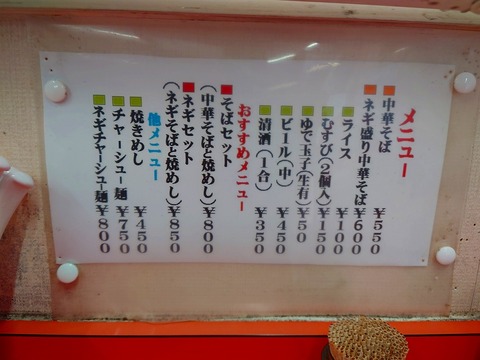 メニュー
中華そば ¥550
ネギ盛り中華そば ¥600
ライス ¥100
むすび(2個入) ¥150
ゆで玉子(生有) ¥50
ビール(中) ¥450
清酒(1合) ¥350
おすすめメニュー
そばセット
(中華そばと焼めし) ¥800
ネギセット
(ネギそばと焼めし) ¥850
他メニュー
焼きめし ¥450
チャーシュー麺 ¥750
ネギチャーシュー麺 ¥800